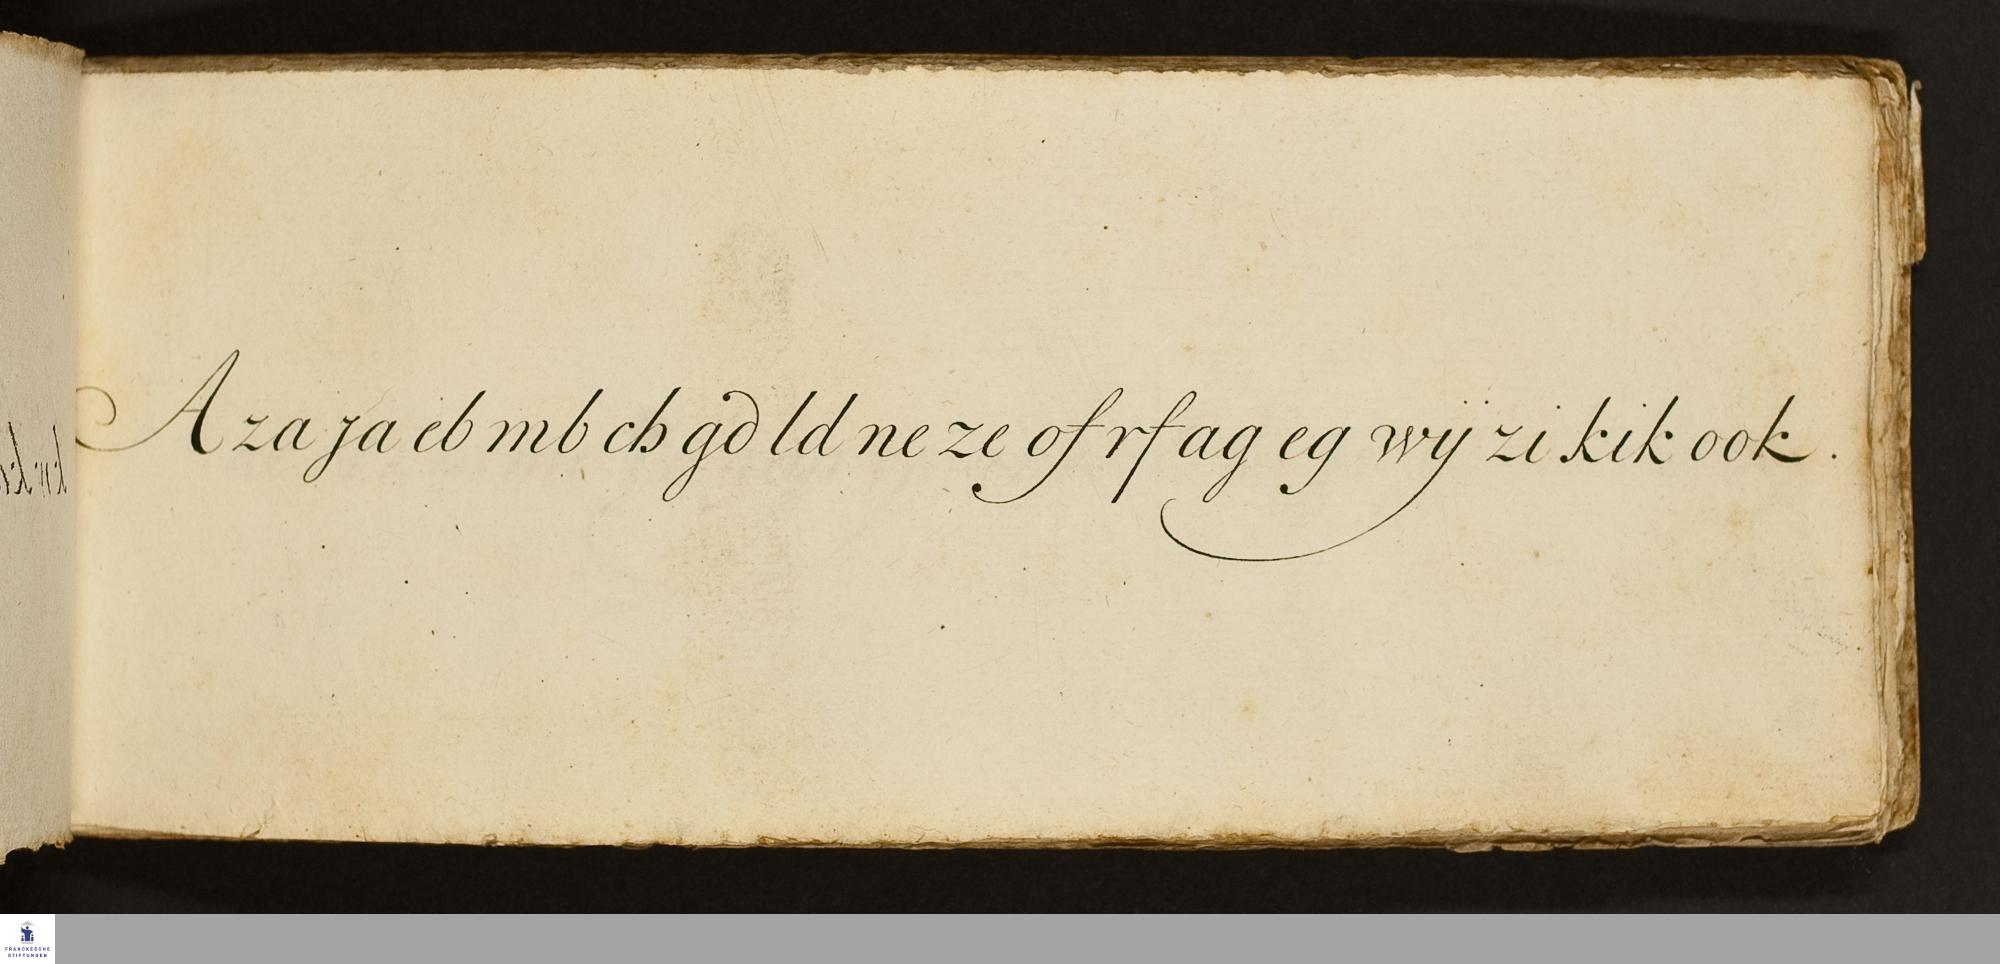 A za ja eb mb ch gd ld ne ze of rf ag eg wij zi kik ook.
FRANCKESCHE
STIFTUNGEN